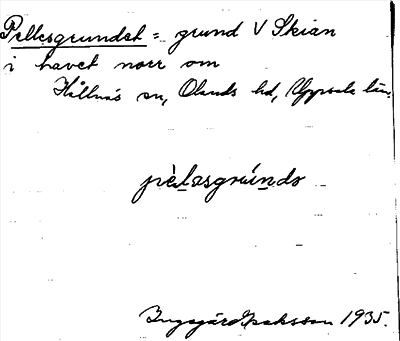 Pellesgrundet = grund V Skian
i havet norr om
Hållnäs sn, Olands hd, Uppsala län.
pèlasgrúndə
Ingegärd Isaksson 1935.